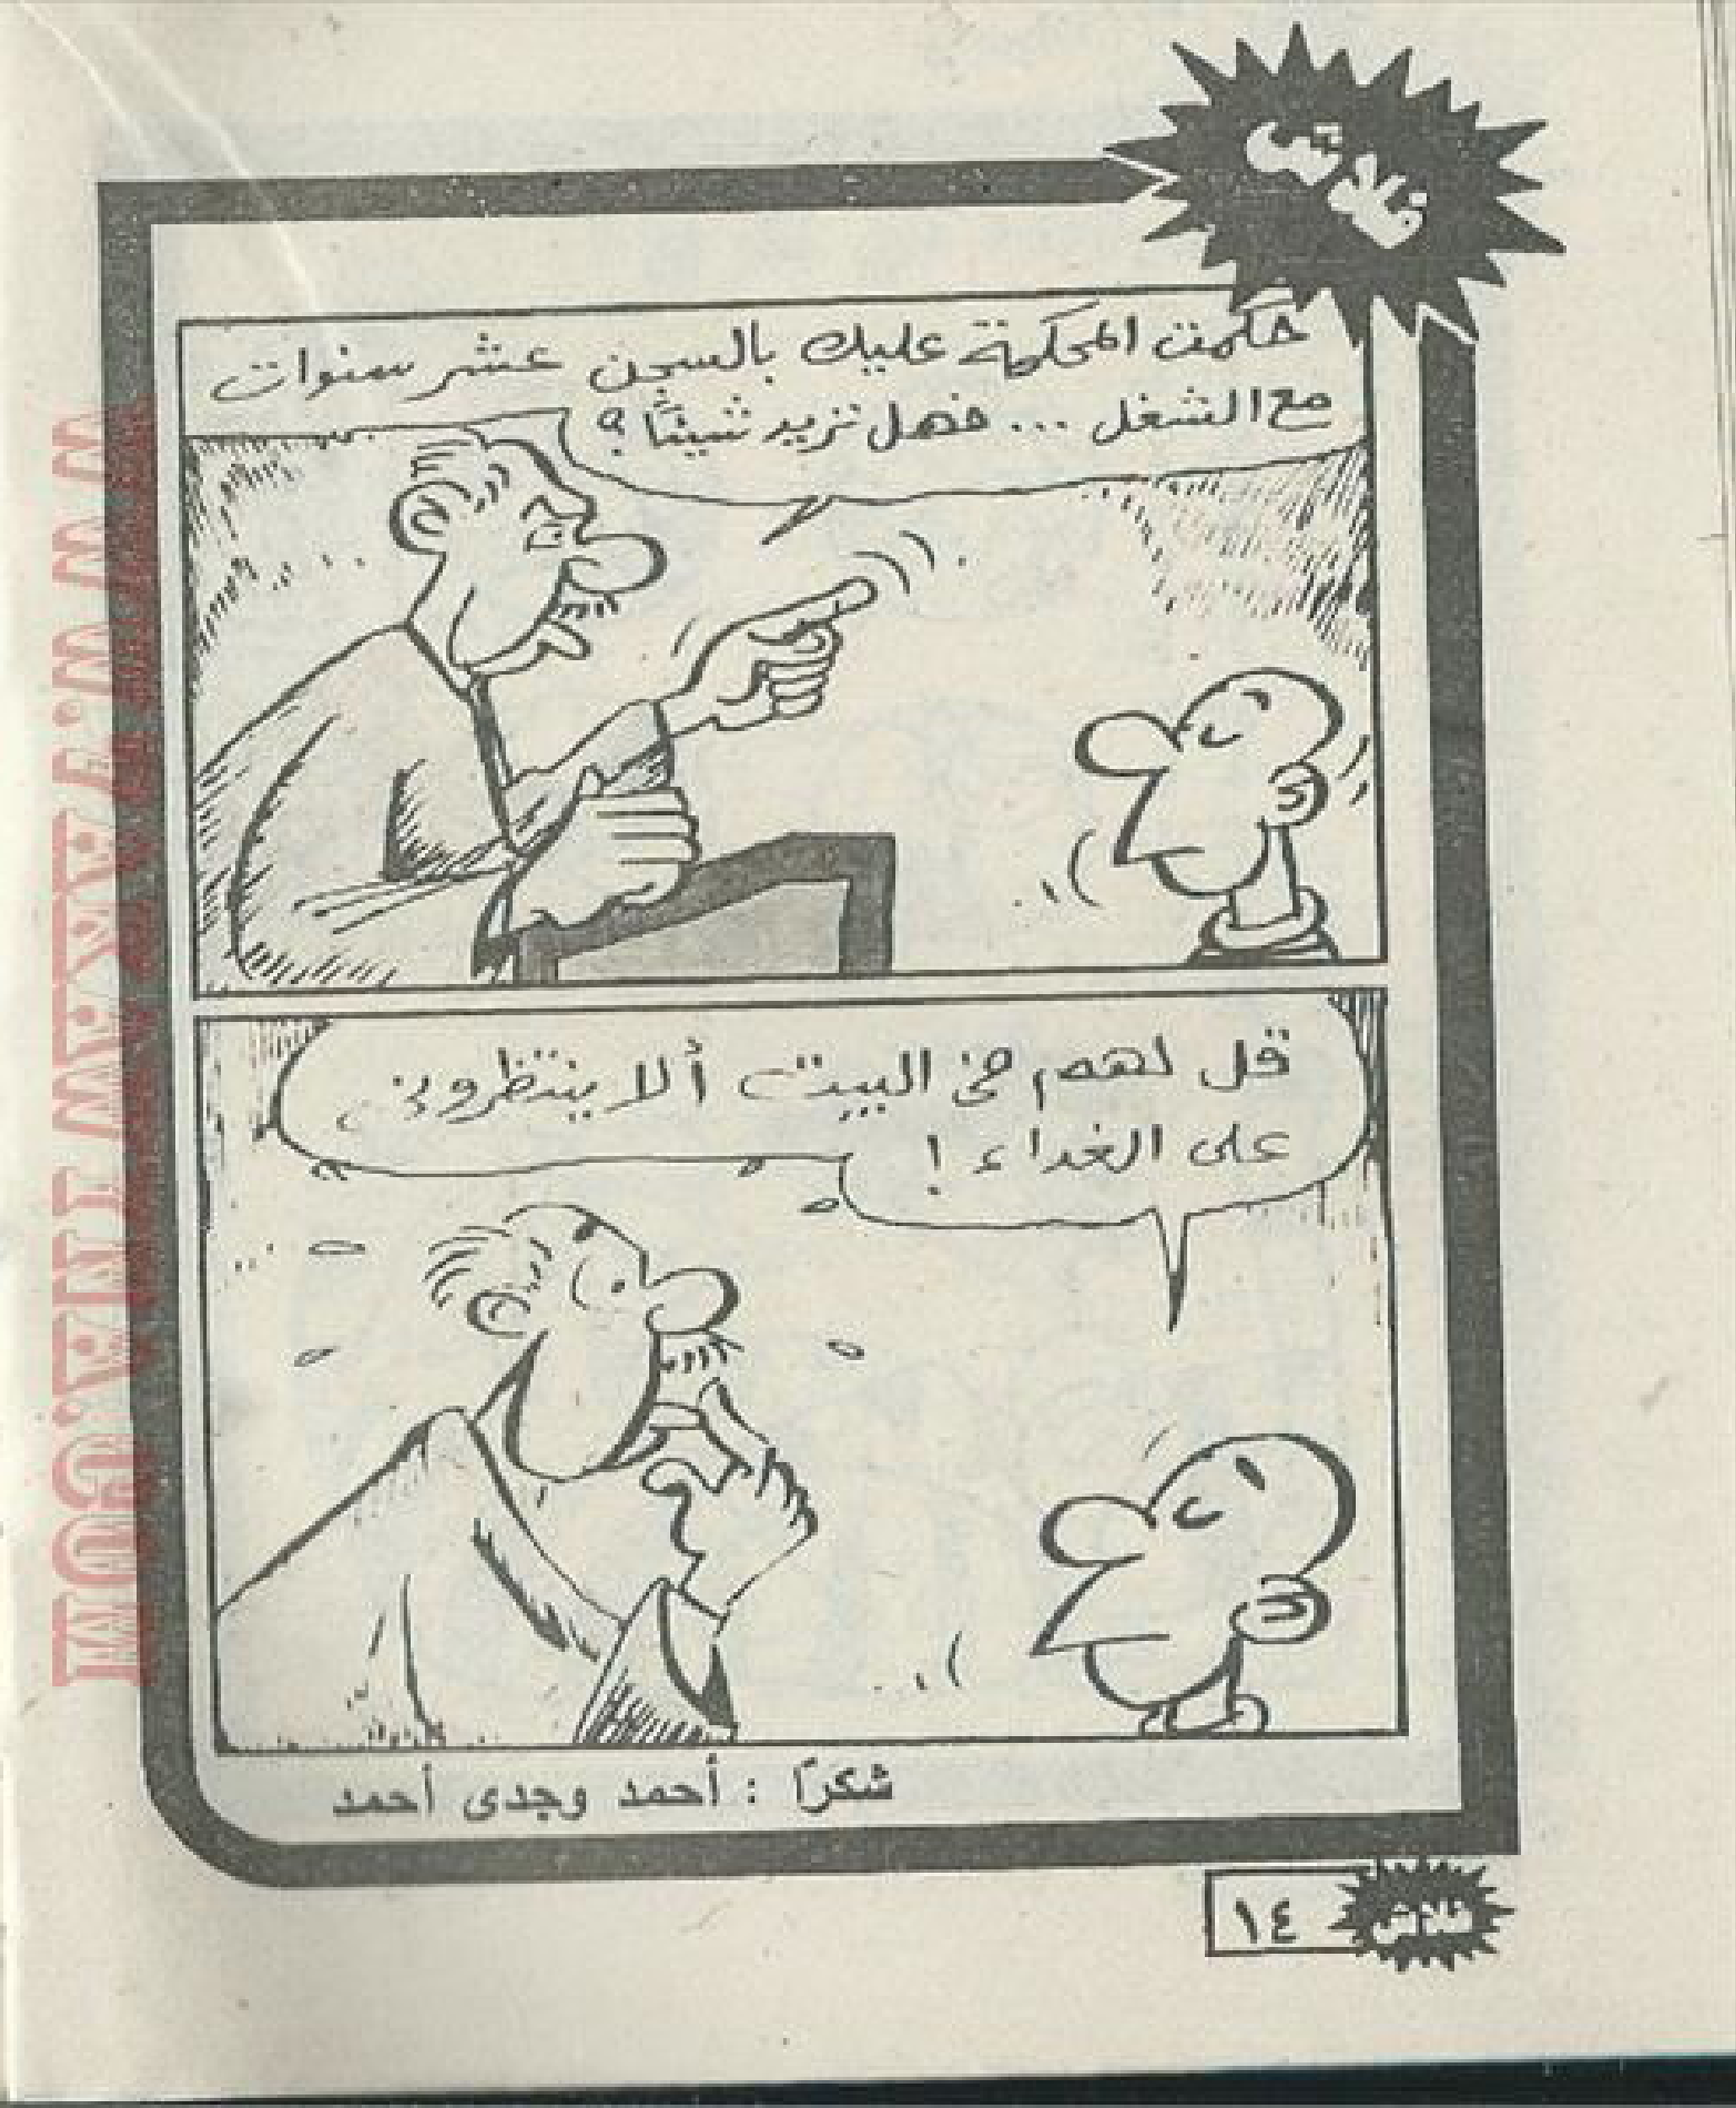 فلاش
حكمت المحكمة عليك بالسجن عشر سنوات
مع الشغل ... فهل تريد شيئًا؟
قل لهم في البيت ألا ينتظروني
على الغداء!
شكرًا : أحمد وجدى أحمد
١٤
فلاش